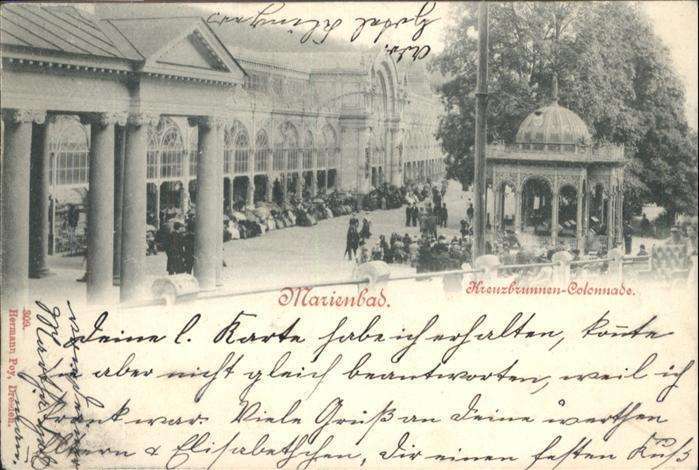 Hotel Klinger
Marienbad.
Kreuzbrunnen-Colonnade.
309. Hermann Poy, Dresden.
Deine l. Karte habe ich erhalten, konnte
aber nicht gleich beantworten, weil ich
krank war. Viele Grüß an deine werthen
Eltern & Elisabethchen, Dir einen festen Kuß